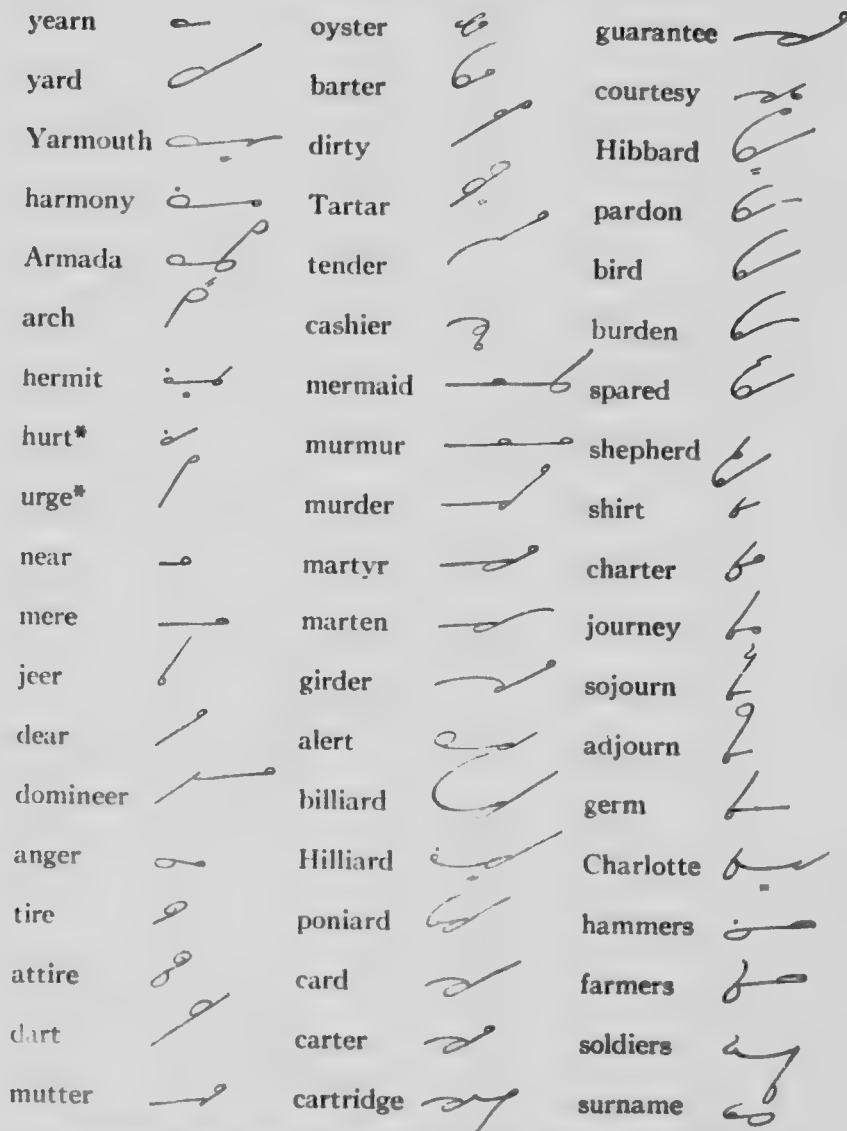 yearn
yard
Yarmouth
harmony
Armada
arch
hermit
hurt*
urge*
near
mere
jeer
dear
domineer
anger
tire
attire
dart
mutter
oyster
barter
dirty
Tartar
tender
cashier
mermaid
murmur
murder
martyr
marten
girder
alert
billiard
Hilliard
poniard
card
carter
cartridge
guarantee
courtesy
Hibbard
pardon
bird
burden
spared
shepherd
shirt
charter
journey
sojourn
adjourn
germ
Charlotte
hammers
farmers
soldiers
surname